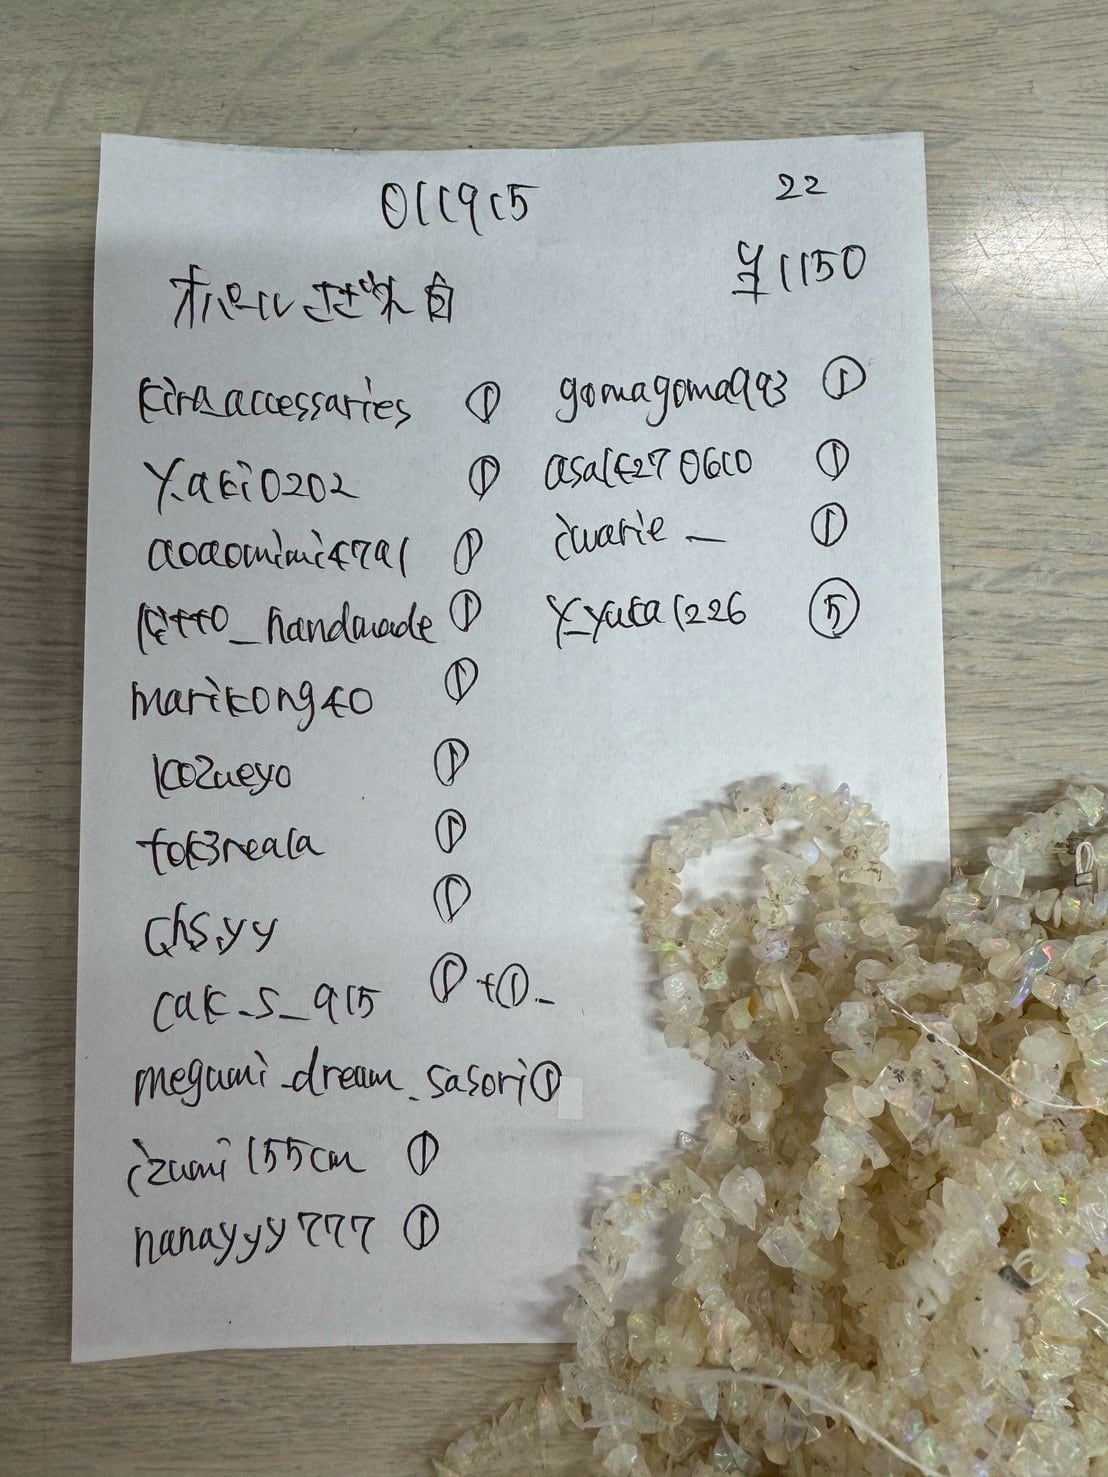 011915
22
オパールさざれ 白
¥1150
kira_accessaries ①
y.aki0202 ①
aoaomimi4791 ①
kitto_handmade ①
marikong40 ①
kozueyo ①
tok3reala ①
chs.yy ①
cak_s_915 ①+①_
megumi_dream_sasori ①
izumi155cm ①
nanayyy777 ①
gomagoma993 ①
asak270610 ①
iwarie_ ①
y_yuka1226 ⑤